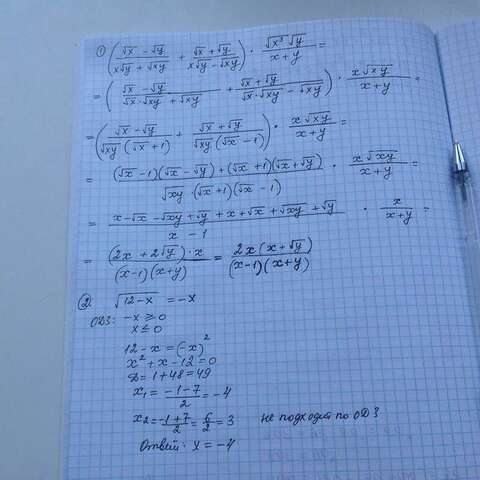 ① ( (√x − √y)/(x√y + √xy) + (√x + √y)/(x√y − √xy) ) · (√x³ √y)/(x + y) =
= ( (√x − √y)/(√x · √xy + √xy) + (√x + √y)/(√x · √xy − √xy) ) · (x√xy)/(x + y) =
= ( (√x − √y)/(√xy (√x + 1)) + (√x + √y)/(√xy (√x − 1)) ) · (x√xy)/(x + y) =
= ((√x − 1)(√x − √y) + (√x + 1)(√x + √y))/(√xy · (√x + 1)(√x − 1)) · (x√xy)/(x + y) =
= (x − √x − √xy + √y + x + √x + √xy + √y)/(x − 1) · x/(x + y) =
= ((2x + 2√y) · x)/((x − 1)(x + y)) = (2x(x + √y))/((x − 1)(x + y))
② √(12 − x) = −x
ОДЗ: −x ≥ 0
x ≤ 0
12 − x = (−x)²
x² + x − 12 = 0
D = 1 + 48 = 49
x₁ = (−1 − 7)/2 = −4
x₂ = (−1 + 7)/2 = 6/2 = 3 не подходит по ОДЗ
Ответ: x = −4